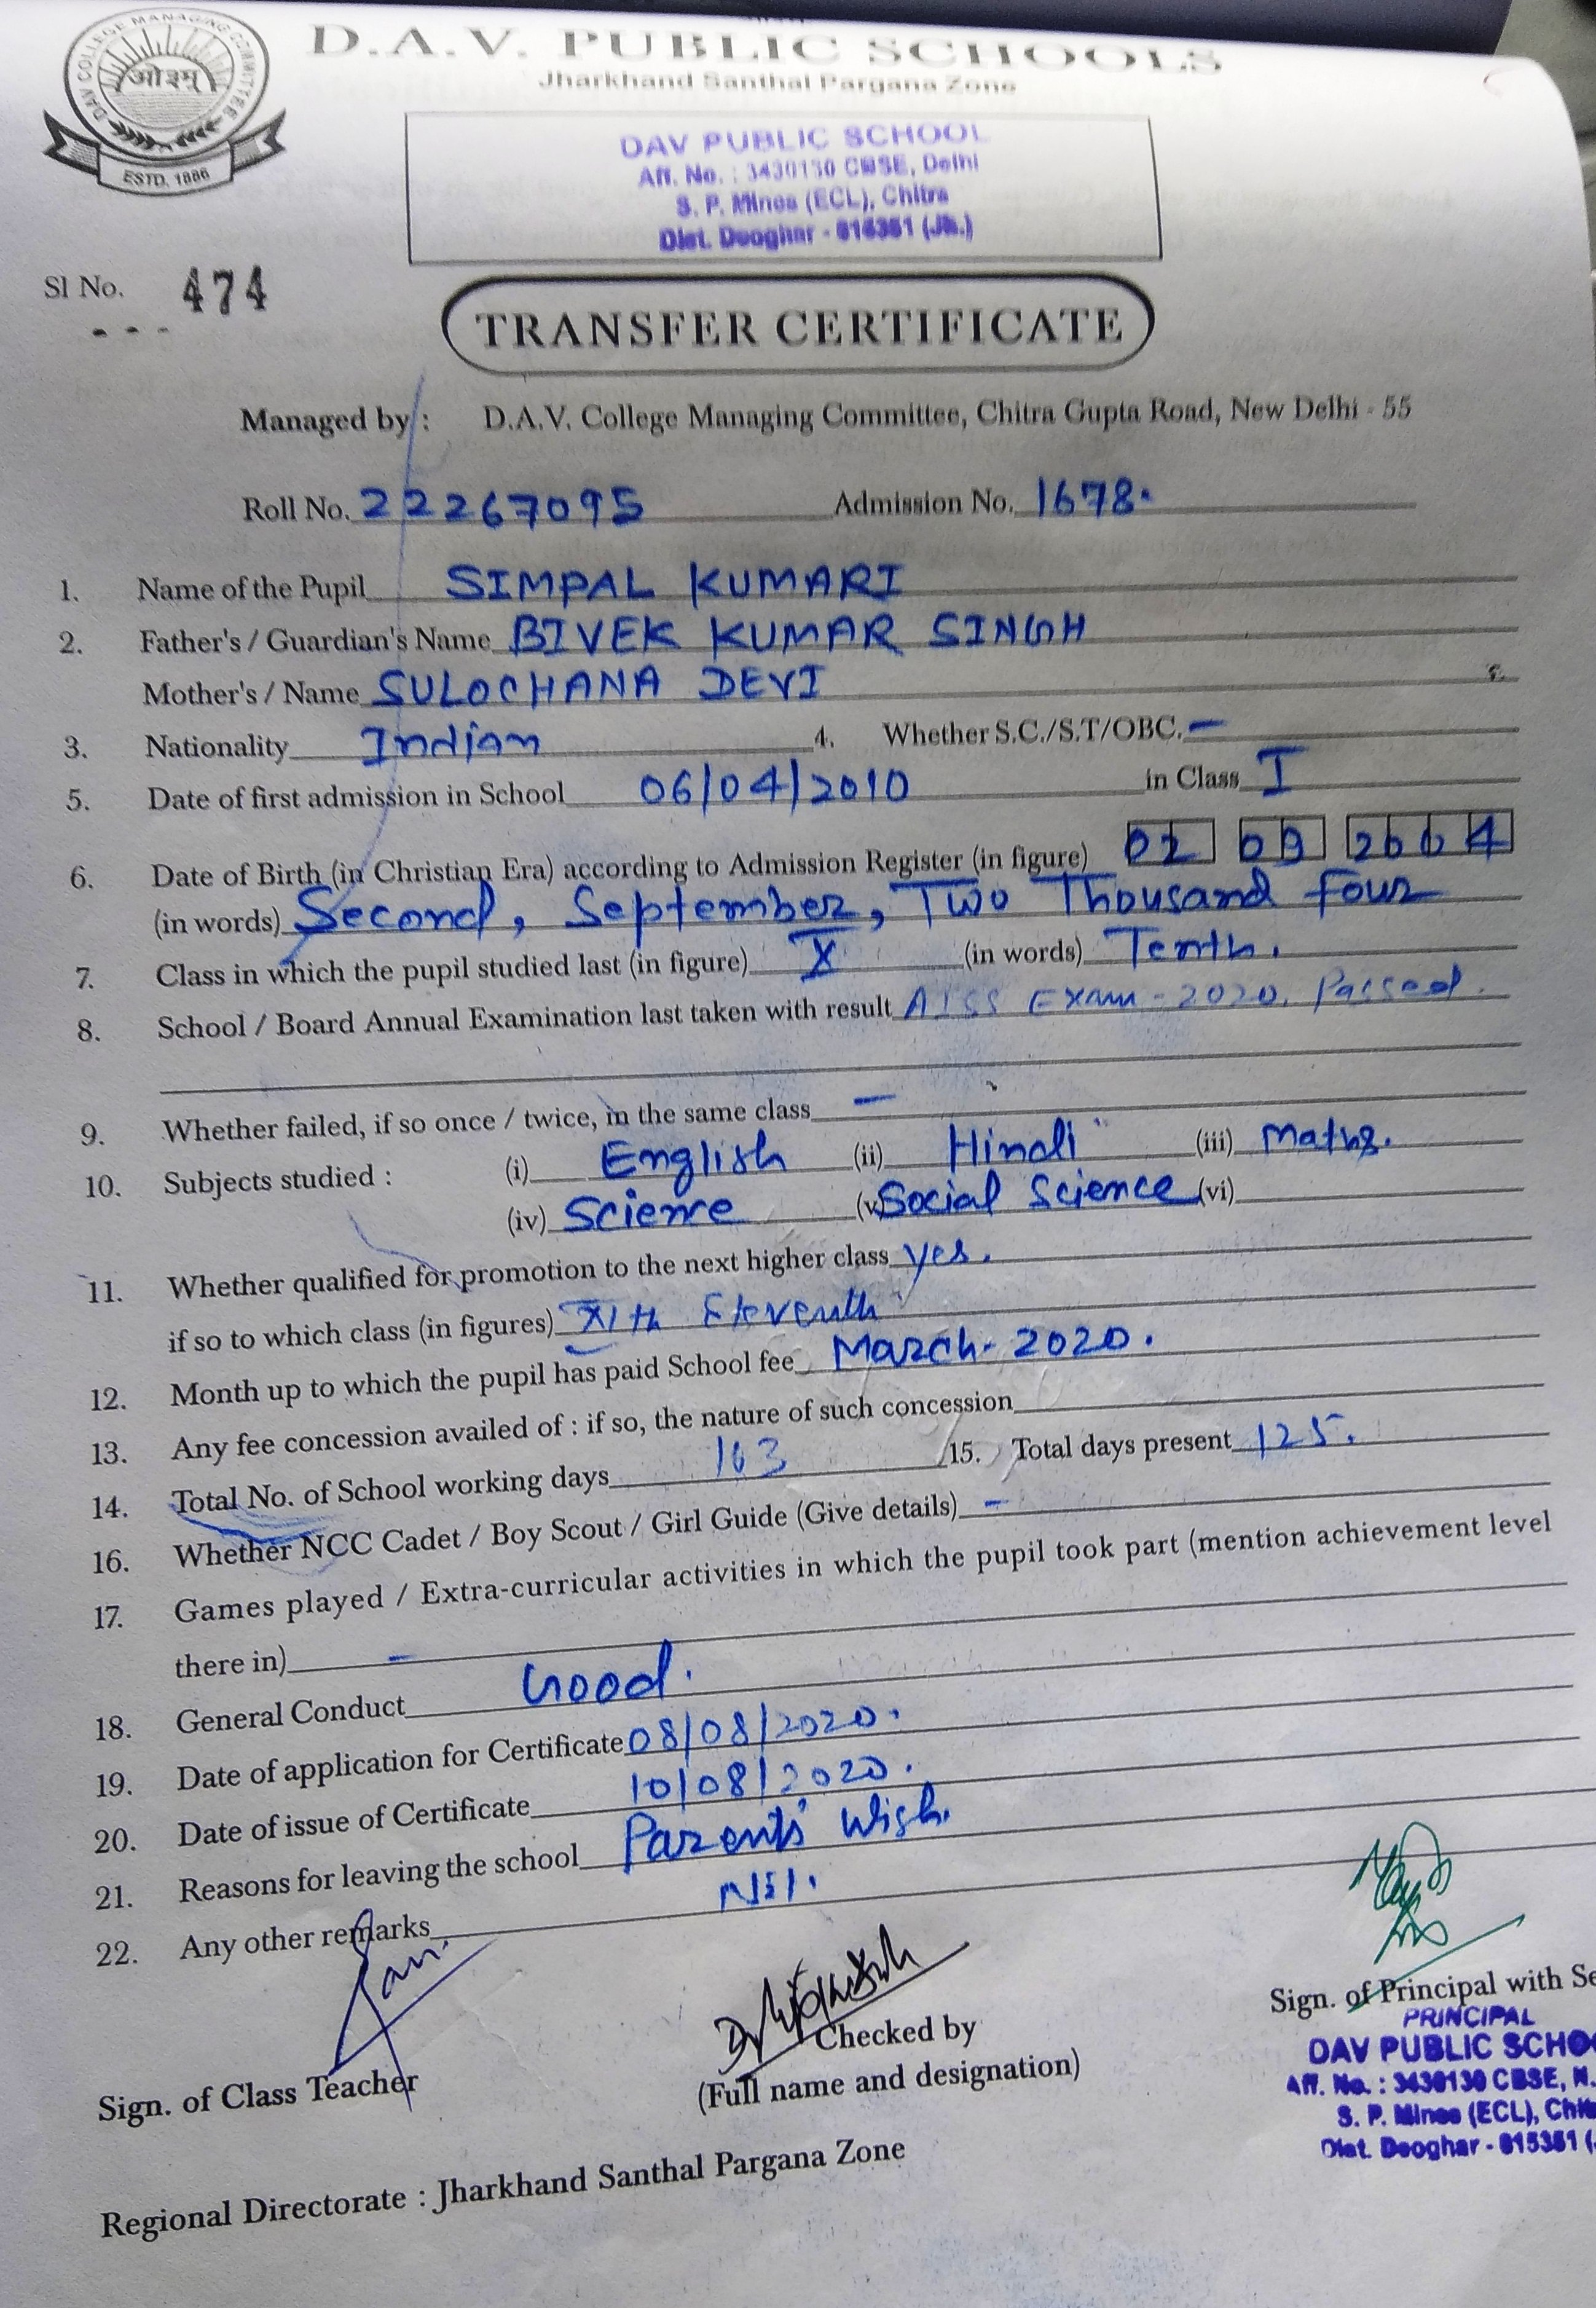 DAV COLLEGE MANAGING COMMITTEE
ओ३म्
ESTD. 1886
D.A.V. PUBLIC SCHOOLS
Jharkhand Santhal Pargana Zone
DAV PUBLIC SCHOOL
Aff. No. : 3430130 CBSE, Delhi
S. P. Mines (ECL), Chitra
Dist. Deoghar - 815351 (Jh.)
Sl No. 474
TRANSFER CERTIFICATE
Managed by : D.A.V. College Managing Committee, Chitra Gupta Road, New Delhi - 55
Roll No. 22267095 Admission No. 1678.
1. Name of the Pupil SIMPAL KUMARI
2. Father's / Guardian's Name BIVEK KUMAR SINGH
Mother's / Name SULOCHANA DEVI
3. Nationality Indian 4. Whether S.C./S.T/OBC. -
5. Date of first admission in School 06/04/2010 in Class I
6. Date of Birth (in Christian Era) according to Admission Register (in figure) 02 09 2004
(in words) Second, September, Two Thousand four
7. Class in which the pupil studied last (in figure) X (in words) Tenth.
8. School / Board Annual Examination last taken with result AISS Exam - 2020. Passed.
9. Whether failed, if so once / twice, in the same class -
10. Subjects studied : (i) English (ii) Hindi (iii) Maths.
(iv) Science (v) Social Science (vi)
11. Whether qualified for promotion to the next higher class yes.
if so to which class (in figures) XIth Eleventh
12. Month up to which the pupil has paid School fee March - 2020.
13. Any fee concession availed of : if so, the nature of such concession
14. Total No. of School working days 163 15. Total days present 125.
16. Whether NCC Cadet / Boy Scout / Girl Guide (Give details) -
17. Games played / Extra-curricular activities in which the pupil took part (mention achievement level
there in) -
18. General Conduct Good.
19. Date of application for Certificate 08/08/2020.
20. Date of issue of Certificate 10/08/2020.
21. Reasons for leaving the school Parents' Wish.
22. Any other remarks Nil.
Sign. of Class Teacher
Checked by
(Full name and designation)
Sign. of Principal with Se
PRINCIPAL
DAV PUBLIC SCHOO
Aff. No. : 3430130 CBSE, N.
S. P. Mines (ECL), Chit
Dist. Deoghar - 815351 (
Regional Directorate : Jharkhand Santhal Pargana Zone